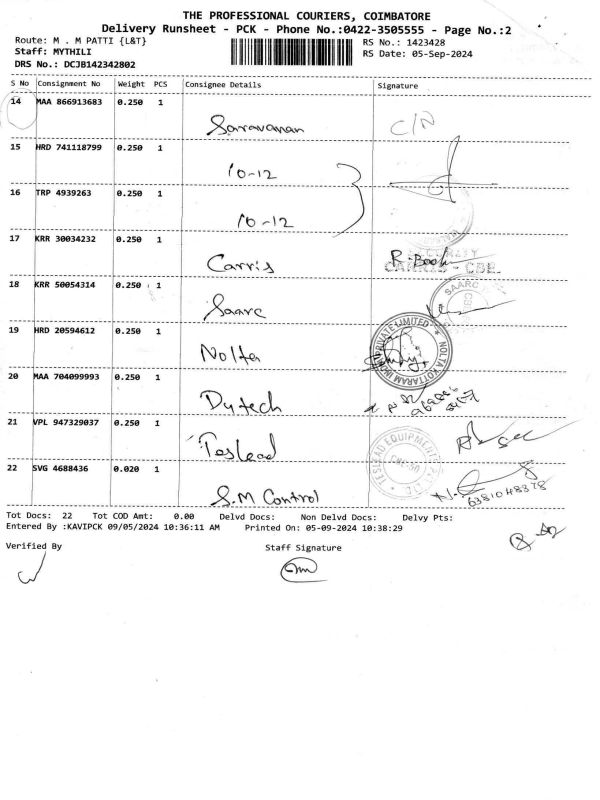 THE PROFESSIONAL COURIERS, COIMBATORE
Delivery Runsheet - PCK - Phone No.:0422-3505555 - Page No.:2
Route: M . M PATTI {L&T} RS No.: 1423428
Staff: MYTHILI RS Date: 05-Sep-2024
DRS No.: DCJB142342802
S No Consignment No Weight PCS Consignee Details Signature
14 MAA 866913683 0.250 1
Saravanan C/N
15 HRD 741118799 0.250 1
10-12
16 TRP 4939263 0.250 1
10-12
17 KRR 30034232 0.250 1
Carris
CARRIS - CBE
18 KRR 50054314 0.250 1
Saarc SAARC CBE
19 HRD 20594612 0.250 1
Nolta NOLTA KOTTARAM INDIA PRIVATE LIMITED
20 MAA 704099993 0.250 1
Dytech
21 VPL 947329037 0.250 1
Teslead TESLEAD EQUIPMENTS
22 SVG 4688436 0.020 1
S.M Control 6381048378
Tot Docs: 22 Tot COD Amt: 0.00 Delvd Docs: Non Delvd Docs: Delvy Pts:
Entered By :KAVIPCK 09/05/2024 10:36:11 AM Printed On: 05-09-2024 10:38:29
Verified By Staff Signature